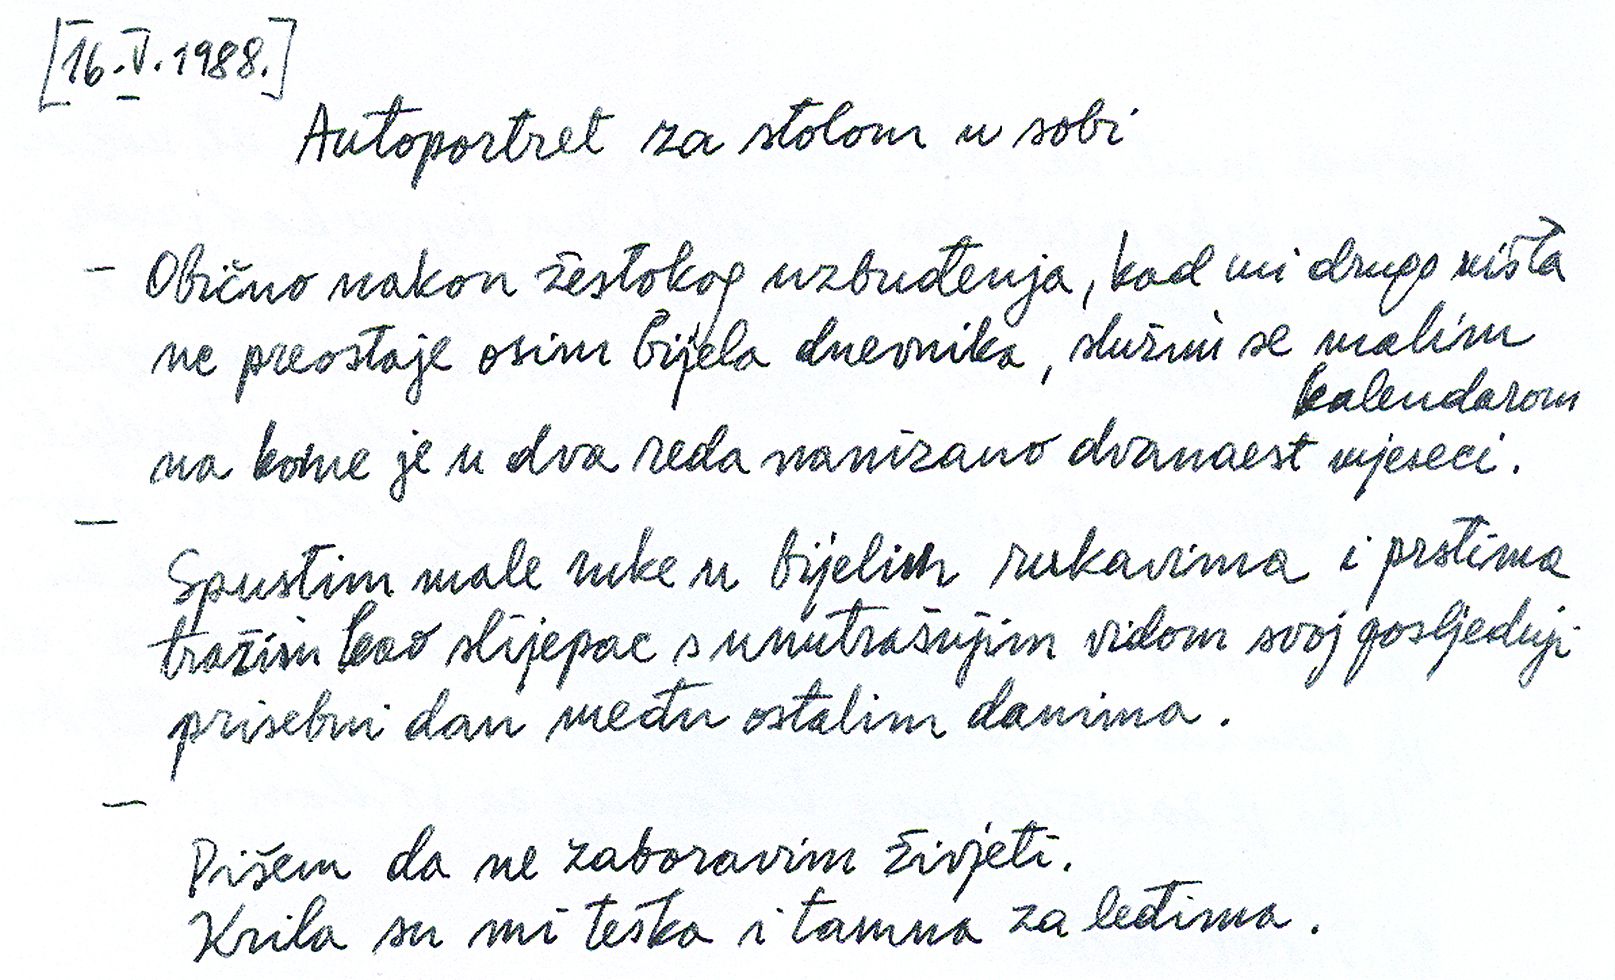 [16.V.1988.]
Autoportret za stolom u sobi
– Obično nakon žestokog uzbuđenja, kad mi drugo ništa
ne preostaje osim bijela dnevnika, služim se malim
kalendarom
na kome je u dva reda nanizano dvanaest mjeseci.
–
Spustim male ruke u bijelim rukavima i prstima
tražim kao slijepac s unutrašnjim vidom svoj posljednji
prisebni dan među ostalim danima.
–
Pišem da ne zaboravim živjeti.
Krila su mi teška i tamna za leđima.